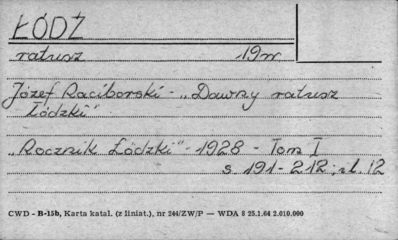 ŁÓDŹ
ratusz 19w
Józef Raciborski - „Dawny ratusz
łódzki"
„Rocznik Łódzki" - 1928 - Tom I
s. 191-212; il. 12
CWD - B-15b, Karta katal. (z liniat.), nr 244/ZW/P — WDA 8 25.1.64 2.010.000